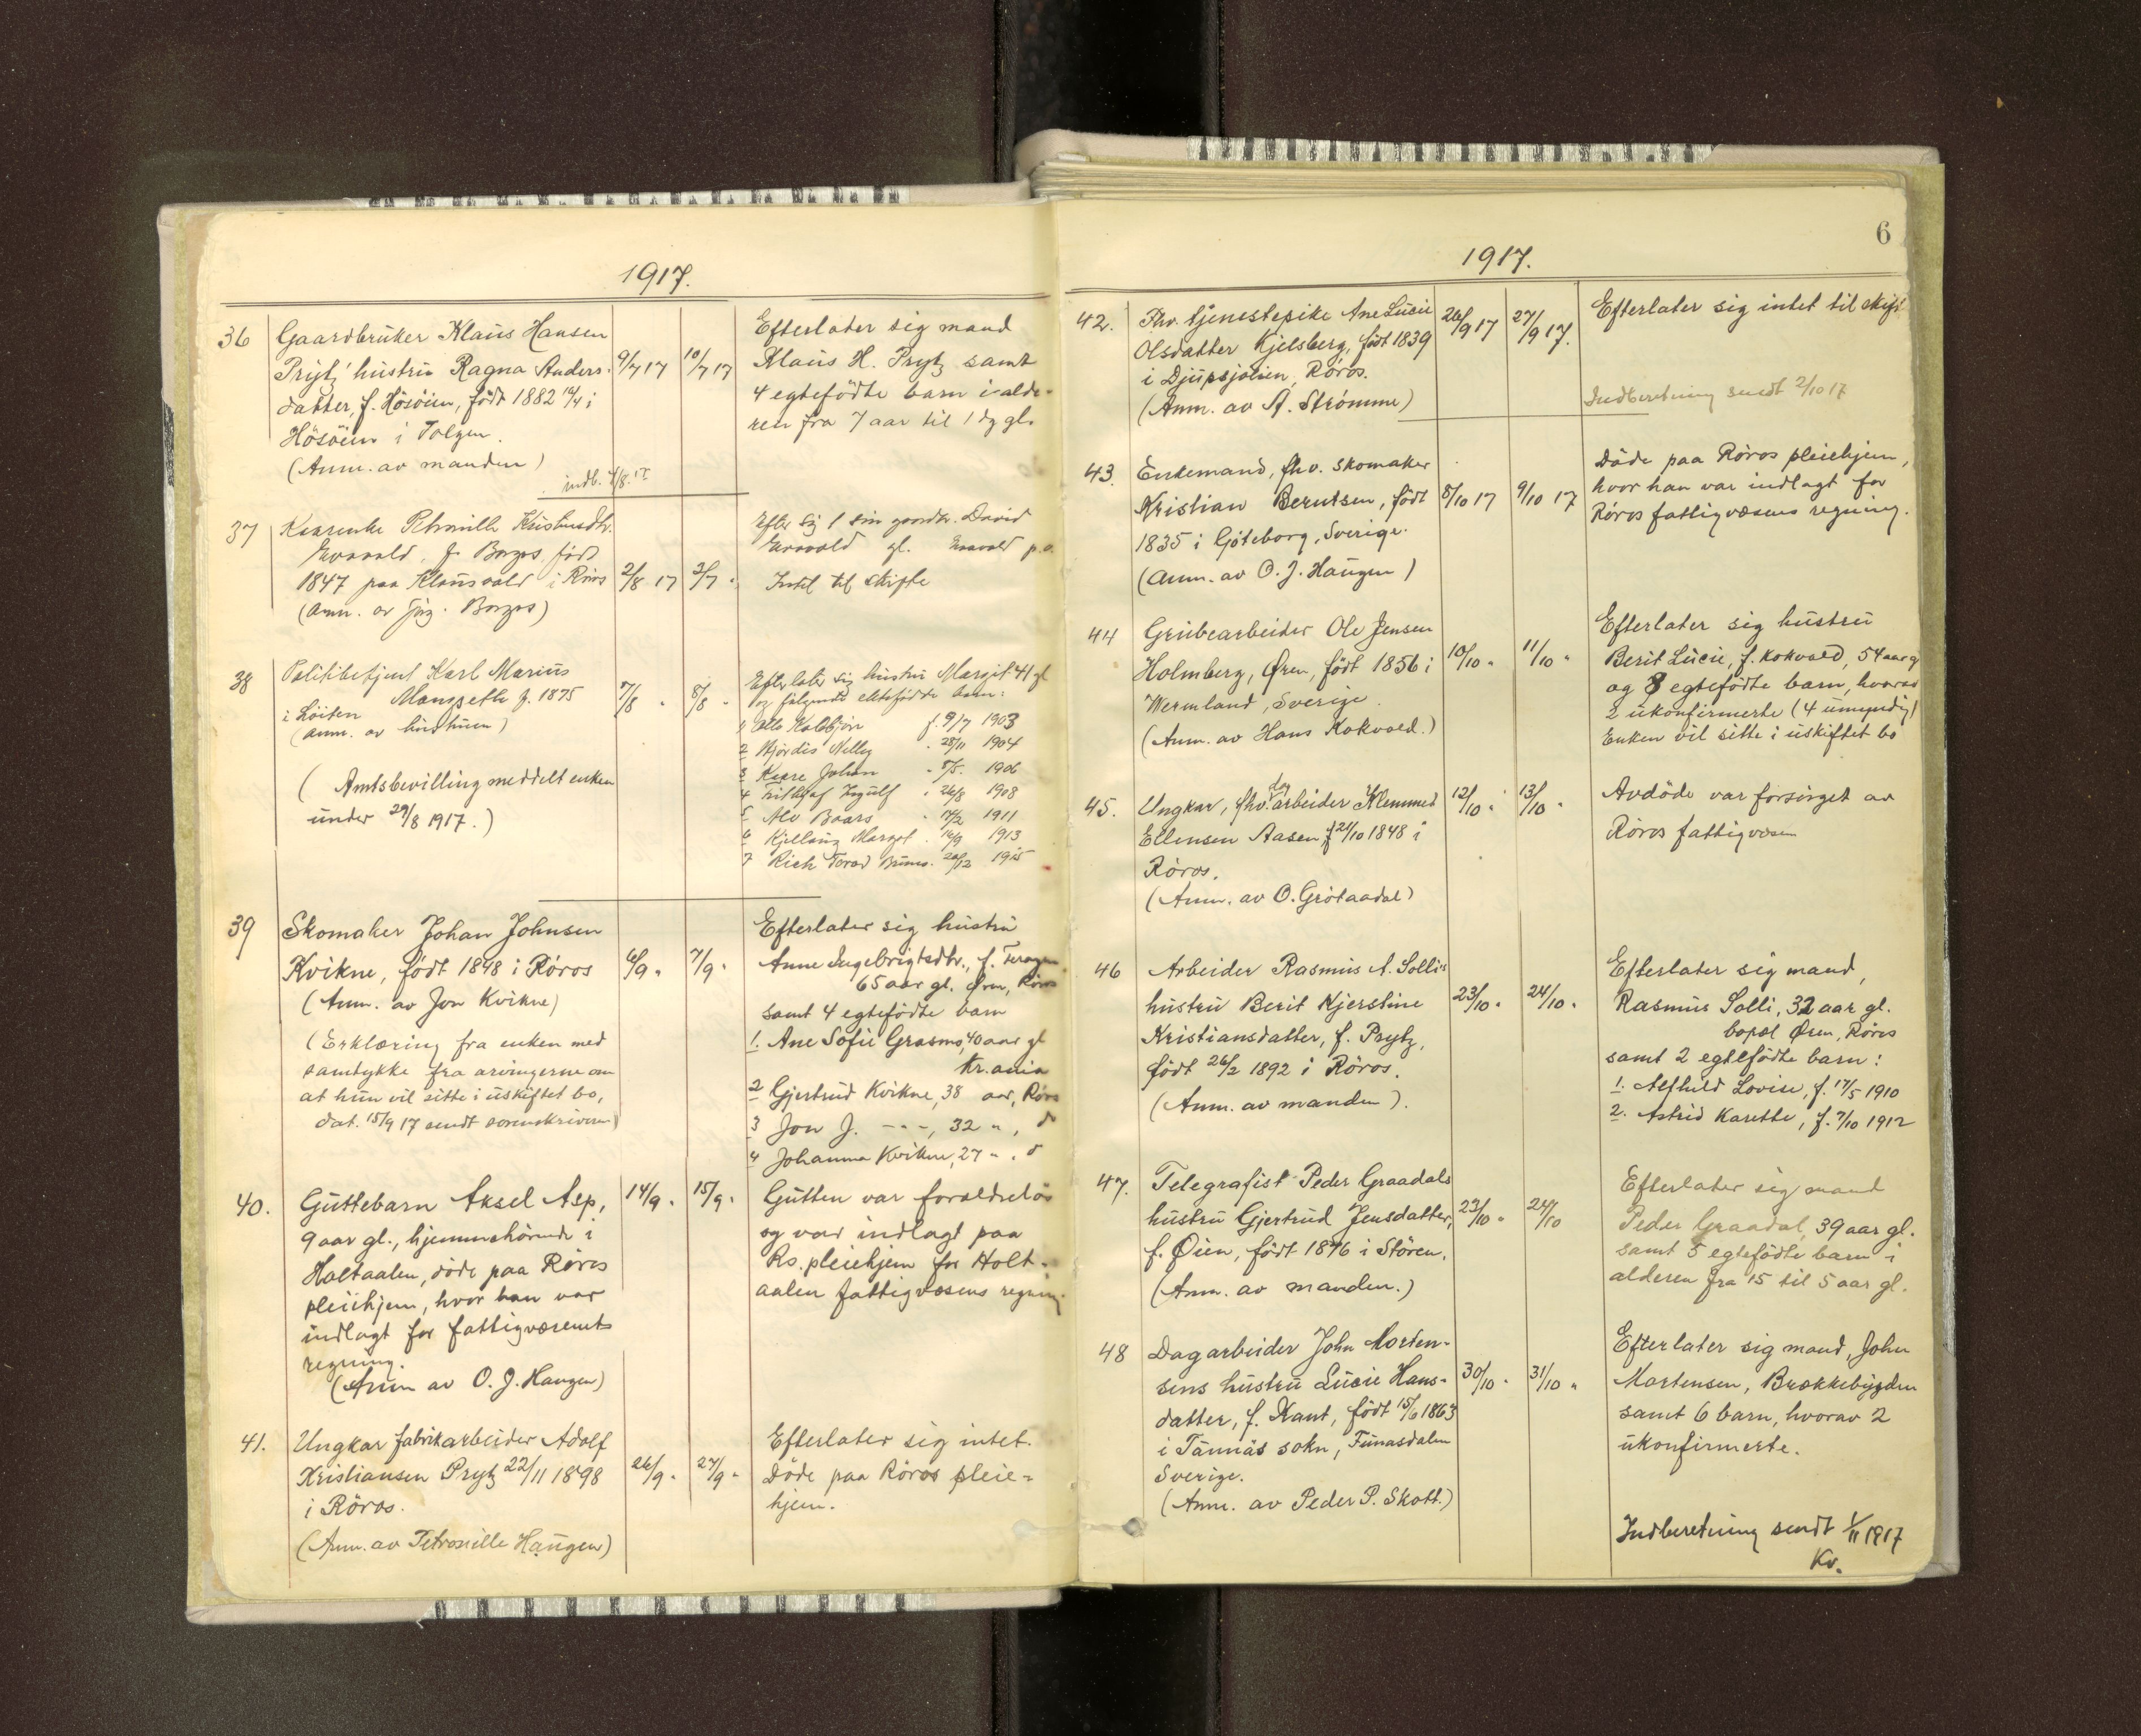 1917.
36 Gaardbruker Klaus Hansen
Prytz' hustru Ragna Anders- 9/7 17 10/7 17
datter, f. Hösöien, født 1882 14/4 i
Hösöien i Tolgen.
(Anm. av manden)
indb. 4/8. 17
Efterlater sig mand
Klaus H. Prytz samt
4 egtefödte barn i alde-
ren fra 7 aar til 1 dg gl.
37 Petronille
f. Borgos født
1847 paa Klausvold i Röros 2/8 17 3/7 "
(Anm. av Jörg. Borgos)
Efterl. sig 1 sön gaardbr. David
gl. p.o.
Intet til skifte
38 Politibetjent Karl Marius
Mangseth f. 1875 7/8 " 8/8 "
i Löiten
(Anm. av hustruen)
(Amtsbevilling meddelt enken
under 29/8 1917.)
Efterlater sig hustru Margit 41 gl
og fölgende ektefödte barn:
1 Otto Kolbjörn f. 9/7 1903
2 Hjördis Nelly " 28/11 1904
3 Kaare Johan " 5/5. 1906
4 Frithjof Ingulf " 26/8 1908
5 Alv Baars " 17/2 1911
6 Kjellaug Margot " 14/9 1913
7 Rich Tored Bruno " 20/12 1915
39 Skomaker Johan Johnsen
Kvikne, födt 1848 i Röros 6/9 " 7/9 "
(Anm. av Jon Kvikne)
(Erklæring fra enken med
samtykke fra arvingerne om
at hun vil sitte i uskiftet bo,
dat. 15/9 17 sendt sorenskriveren)
Efterlater sig hustru
Anne Ingebrigtsdtr., f. Feragen
65 aar gl. Øren, Röros
samt 4 egtefödte barn
1. Ane Sofie Grasmo, 40 aar gl
Kr.ania
2 Gjertrud Kvikne, 38 aar, Röros
3 Jon J. - " -, 32 ", d
4 Johanna Kvikne, 27 ", d
40. Guttebarn Aksel Asp, 14/9 " 15/9 "
9 aar gl., hjemmehörende i
Holtaalen, döde paa Röros
pleiehjem, hvor han var
indlagt for fattigvæsenets
regning.
(Anm av O. J. Haugen)
Gutten var forældrelös
og var indlagt paa
Rs. pleiehjem for Holt-
aalen fattigvæsens regning
41. Ungkar fabrikarbeider Adolf
Kristiansen Prytz 22/11 1898 26/9 " 27/9 "
i Röros.
(Anm. av Petronille Haugen)
Efterlater sig intet.
Döde paa Röros pleie-
hjem.
6
1917.
42. Fhv. tjenestepike Ane Lucie 26/9 17 27/9 17.
Olsdatter Kjelsberg, født 1839
i Djupsjöien, Röros.
(Anm. av A. Strömme)
Efterlater sig intet til skift
Indberetning sendt 2/10 17
43. Enkemand, fhv. skomaker
Kristian Berntsen, födt 8/10 17 9/10 17
1835 i Göteborg, Sverige.
(Anm. av O. J. Haugen)
Döde paa Röros pleiehjem,
hvor han var indlagt for
Röros fattigvæsens regning.
44 Grubearbeider Ole Jensen
Holmberg, Øren, född 1856 i 10/10 " 11/10 "
Wermland, Sverige.
(Anm. av Hans Kokvold.)
Efterlater sig hustru
Berit Lucie, f. Kokvold, 54 aar g
og 8 egtefödte barn, hvorav
2 ukonfirmerte (4 umyndig)
Enken vil sitte i uskiftet bo
45. Ungkar, fhv. dagarbeider Klemmet 12/10 " 13/10 "
Ellensen Aasen f 21/10 1848 i
Röros.
(Anm. av O. Grötaadal)
Avdöde var forsörget av
Röros fattigvæsen
46 Arbeider Rasmus A. Sollis
hustru Berit Kjerstine 23/10 " 24/10 "
Kristiansdatter, f. Prytz,
född 26/2 1892 i Röros.
(Anm. av manden).
Efterlater sig mand,
Rasmus Solli, 32 aar gl.
bopæl Øren, Röros
samt 2 egtefödte barn:
1. Alfhild Lovise, f. 17/5 1910
2. Astrid Karette, f. 7/10 1912
47. Telegrafist Peder Graadals
hustru Gjertrud Jensdatter, 23/10 " 24/10
f. Øien, född 1876 i Stören.
(Anm. av manden.)
Efterlater sig mand
Peder Graadal, 39 aar gl.
samt 5 egtefödte barn i
alderen fra 15 til 5 aar gl.
48 Dagarbeider John Morten-
sens hustru Lucie Hans- 30/10 " 31/10 "
datter, f. Kant, födt 15/6 1863
i Tännäs sokn, Funasdalen
Sverige.
(Anm. av Peder P. Skott.)
Efterlater sig mand, John
Mortensen, Brækkebygden
samt 6 barn, hvorav 2
ukonfirmerte.
Indberetning sendt 1/11 1917
Kv.